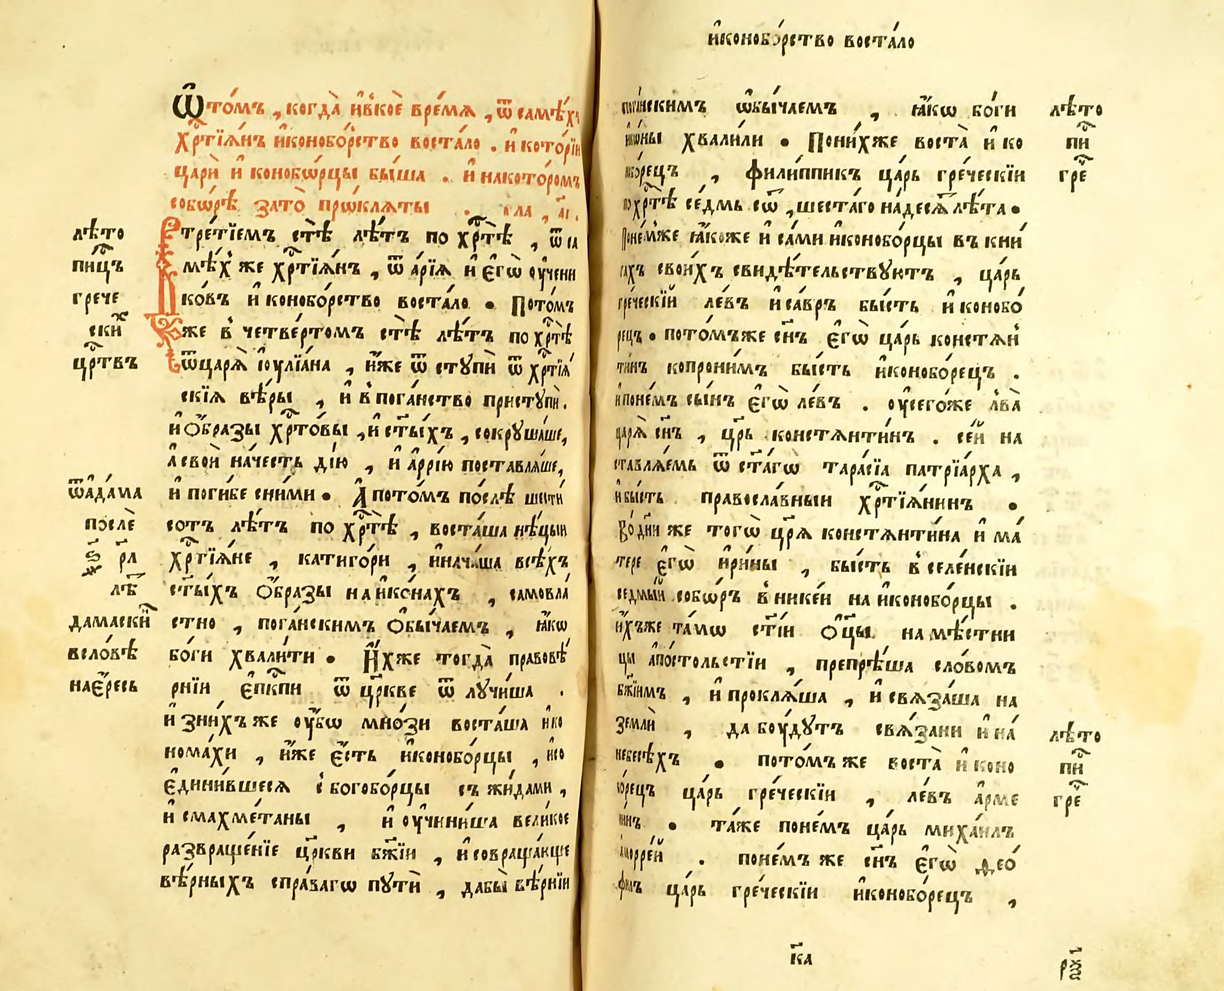 Ѿто́мъ , когда̀ и҆в коѐ вре́мѧ , ѿ саме́хъ
хрⷭ҇тїѧ́нъ и҆коноборство воста́ло . и҆ кото́рїи
царѝ и҆ конобѡ́рцы бы́ша . и҆ на которомъ
собо́рѣ зато̀ прѡклѧты . гла , аı .
лѣто
третїемъ стѣ̀ лѣтъ по хрⷭ҇тѣ̀ , ѿ са
пи́цъ
мѣ́х же хрⷭ҇тїѧ́нъ , ѿ а҆рїѧ и҆ є҆гѡ̀ оу҆чени
грече
кѡвъ и҆ коноборство воста́ло . Пото́мъ
ски
же в четве́ртомъ стѣ̀ лѣтъ по хрⷭ҇тѣ̀
црⷭ҇твъ
ѿ царѧ̀ і҆оулїа́на , и҆́же ѿ ступѝ ѿ хрⷭ҇тїѧ́
скїѧ вѣ́ры , и҆ в пога́нство приступѝ .
и҆ ѻ҆́бразы хрⷭ҇то́вы , и҆ ст҃ы́хъ , сокруша́ше ,
а҆ свой на́честь дїю , и҆ а҆ррїю поставлѧ́ше ,
ѿ а҆да́ма
и҆ поги́бе сни́ми . А҆ пото́мъ по́слѣ шести́
после̏
сотъ лѣтъ по хрⷭ҇тѣ̀ , воста́ша нѣ́цыи
ѕ҃ рл
хрⷭ҇тїѧ́не , катиго́ри , и҆ нача́ша всѣ́хъ
лѣⷮ
ст҃ы́хъ ѻ҆́бразы на и҆ко́нахъ , самовла́
дамаскиⷩ
стно , пога́нскимъ ѻ҆бы́чаемъ , ꙗ҆́кѡ
всло́вѣ
бо́ги хвали́ти . И҆́хже тогда̀ правовѣ́
на е҆́ресь
рнїи є҆пкⷭ҇пи ѿ цр҃кве ѿ лучи́ша .
и҆ зни́хъ же оу҆́бѡ мно́зи воста́ша и҆ ко
нома́хи , и҆́же є҆́сть и҆конобо́рцы , и҆ со
є҆дини́вшесѧ с богобо́рцы съ жи́дами ,
и҆ смахметаны , и҆ оу҆чини́ша вели́кое
развраще́нїе цр҃кви бж҃їи , и҆ совраща́юще
вѣ́рныхъ спра́вагѡ пути̏ , дабы̀ вѣ́рнїи
и҆коноборство воста́ло
пога́нскимъ ѡ҆бы́чаемъ , ꙗ҆́кѡ бо́ги
лѣто
и҆ко́ны хвали́ли . Пони́хже воста̀ и҆ ко
пи
нобо́рецъ , филиппикъ ца́рь гре́ческїи
гре
по хрⷭ҇тѣ̀ се́дмь сѡⷮ , шеста́гонадесѧ лѣ́та .
Поне́мже ꙗ҆́коже и҆ са́ми и҆конобо́рцы въ кни
гахъ свои́хъ свидѣ́тельствуютъ , ца́рь
гре́ческїй ле́въ и҆са́връ бы́сть и҆ конобо́
рецъ . пото́мъ же сн҃ъ є҆гѡ̀ ца́рь констѧн
тинъ копрони́мъ бы́сть и҆конобо́рецъ .
и҆ поне́мъ сы́нъ є҆гѡ̀ ле́въ . оу҆сего́же льва̀
царѧ̀ сн҃ъ , цр҃ь констѧнти́нъ . се́й на
ставлѧ́емь ѿ ст҃а́гѡ тара́сїа патрїа́рха ,
и҆ бы́сть правосла́вныи хрⷭ҇тїѧ́нинъ .
Во дни́ же тогѡ̀ цр҃ѧ̀ констѧнти́на и҆ ма́
тере є҆гѡ̀ и҆ри́ны , бы́сть в селе́нскїи
седмы́й собѡ́ръ в нике́и на и҆конобо́рцы .
и҆́хъ же та́мѡ ст҃і́и ѻ҆ц҃ы̀ на мѣ́стни
цы а҆по́стольстїи , препрѣ́ша сло́вомъ
бж҃їимъ , и҆ проклѧ́ша , и҆ свѧза́ша на
землѝ , да боу́дутъ свѧ́зани и҆ на́
лѣто
небесѣ́хъ . пото́мъ же воста̀ и҆ коно
пи
бо́рецъ ца́рь гре́ческїи , ле́въ а҆рме
гре
нинъ . та́же поне́мъ ца́рь михаи́лъ
а҆морре́й . поне́мъ же сн҃ъ є҆гѡ̀ ѳео́
филъ ца́рь гре́ческїи и҆конобо́рецъ ,
к҃а